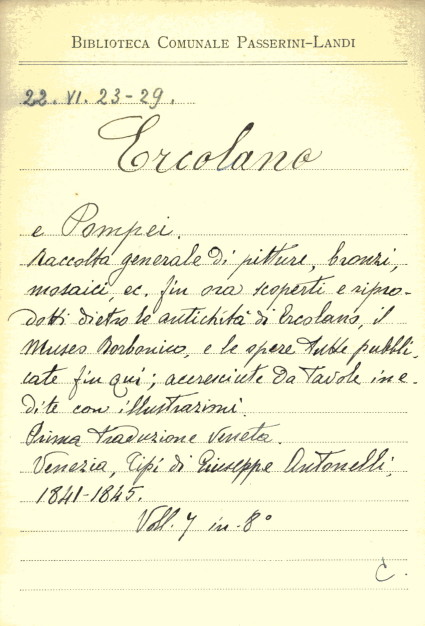 BIBLIOTECA COMUNALE PASSERINI-LANDI
22. VI. 23-29.
Ercolano
e Pompei.
Raccolta generale di pitture, bronzi,
mosaici, ec. fin ora scoperti e ripro-
dotti dietro le antichità di Ercolano, il
Museo Borbonico, e le opere tutte pubbli,
cate fin qui; accresciute da tavole ine-
dite con illustrazioni.
Prima traduzione veneta.
Venezia, Tipi di Giuseppe Antonelli,
1841-1845.
Voll. 7 in-8°
C.